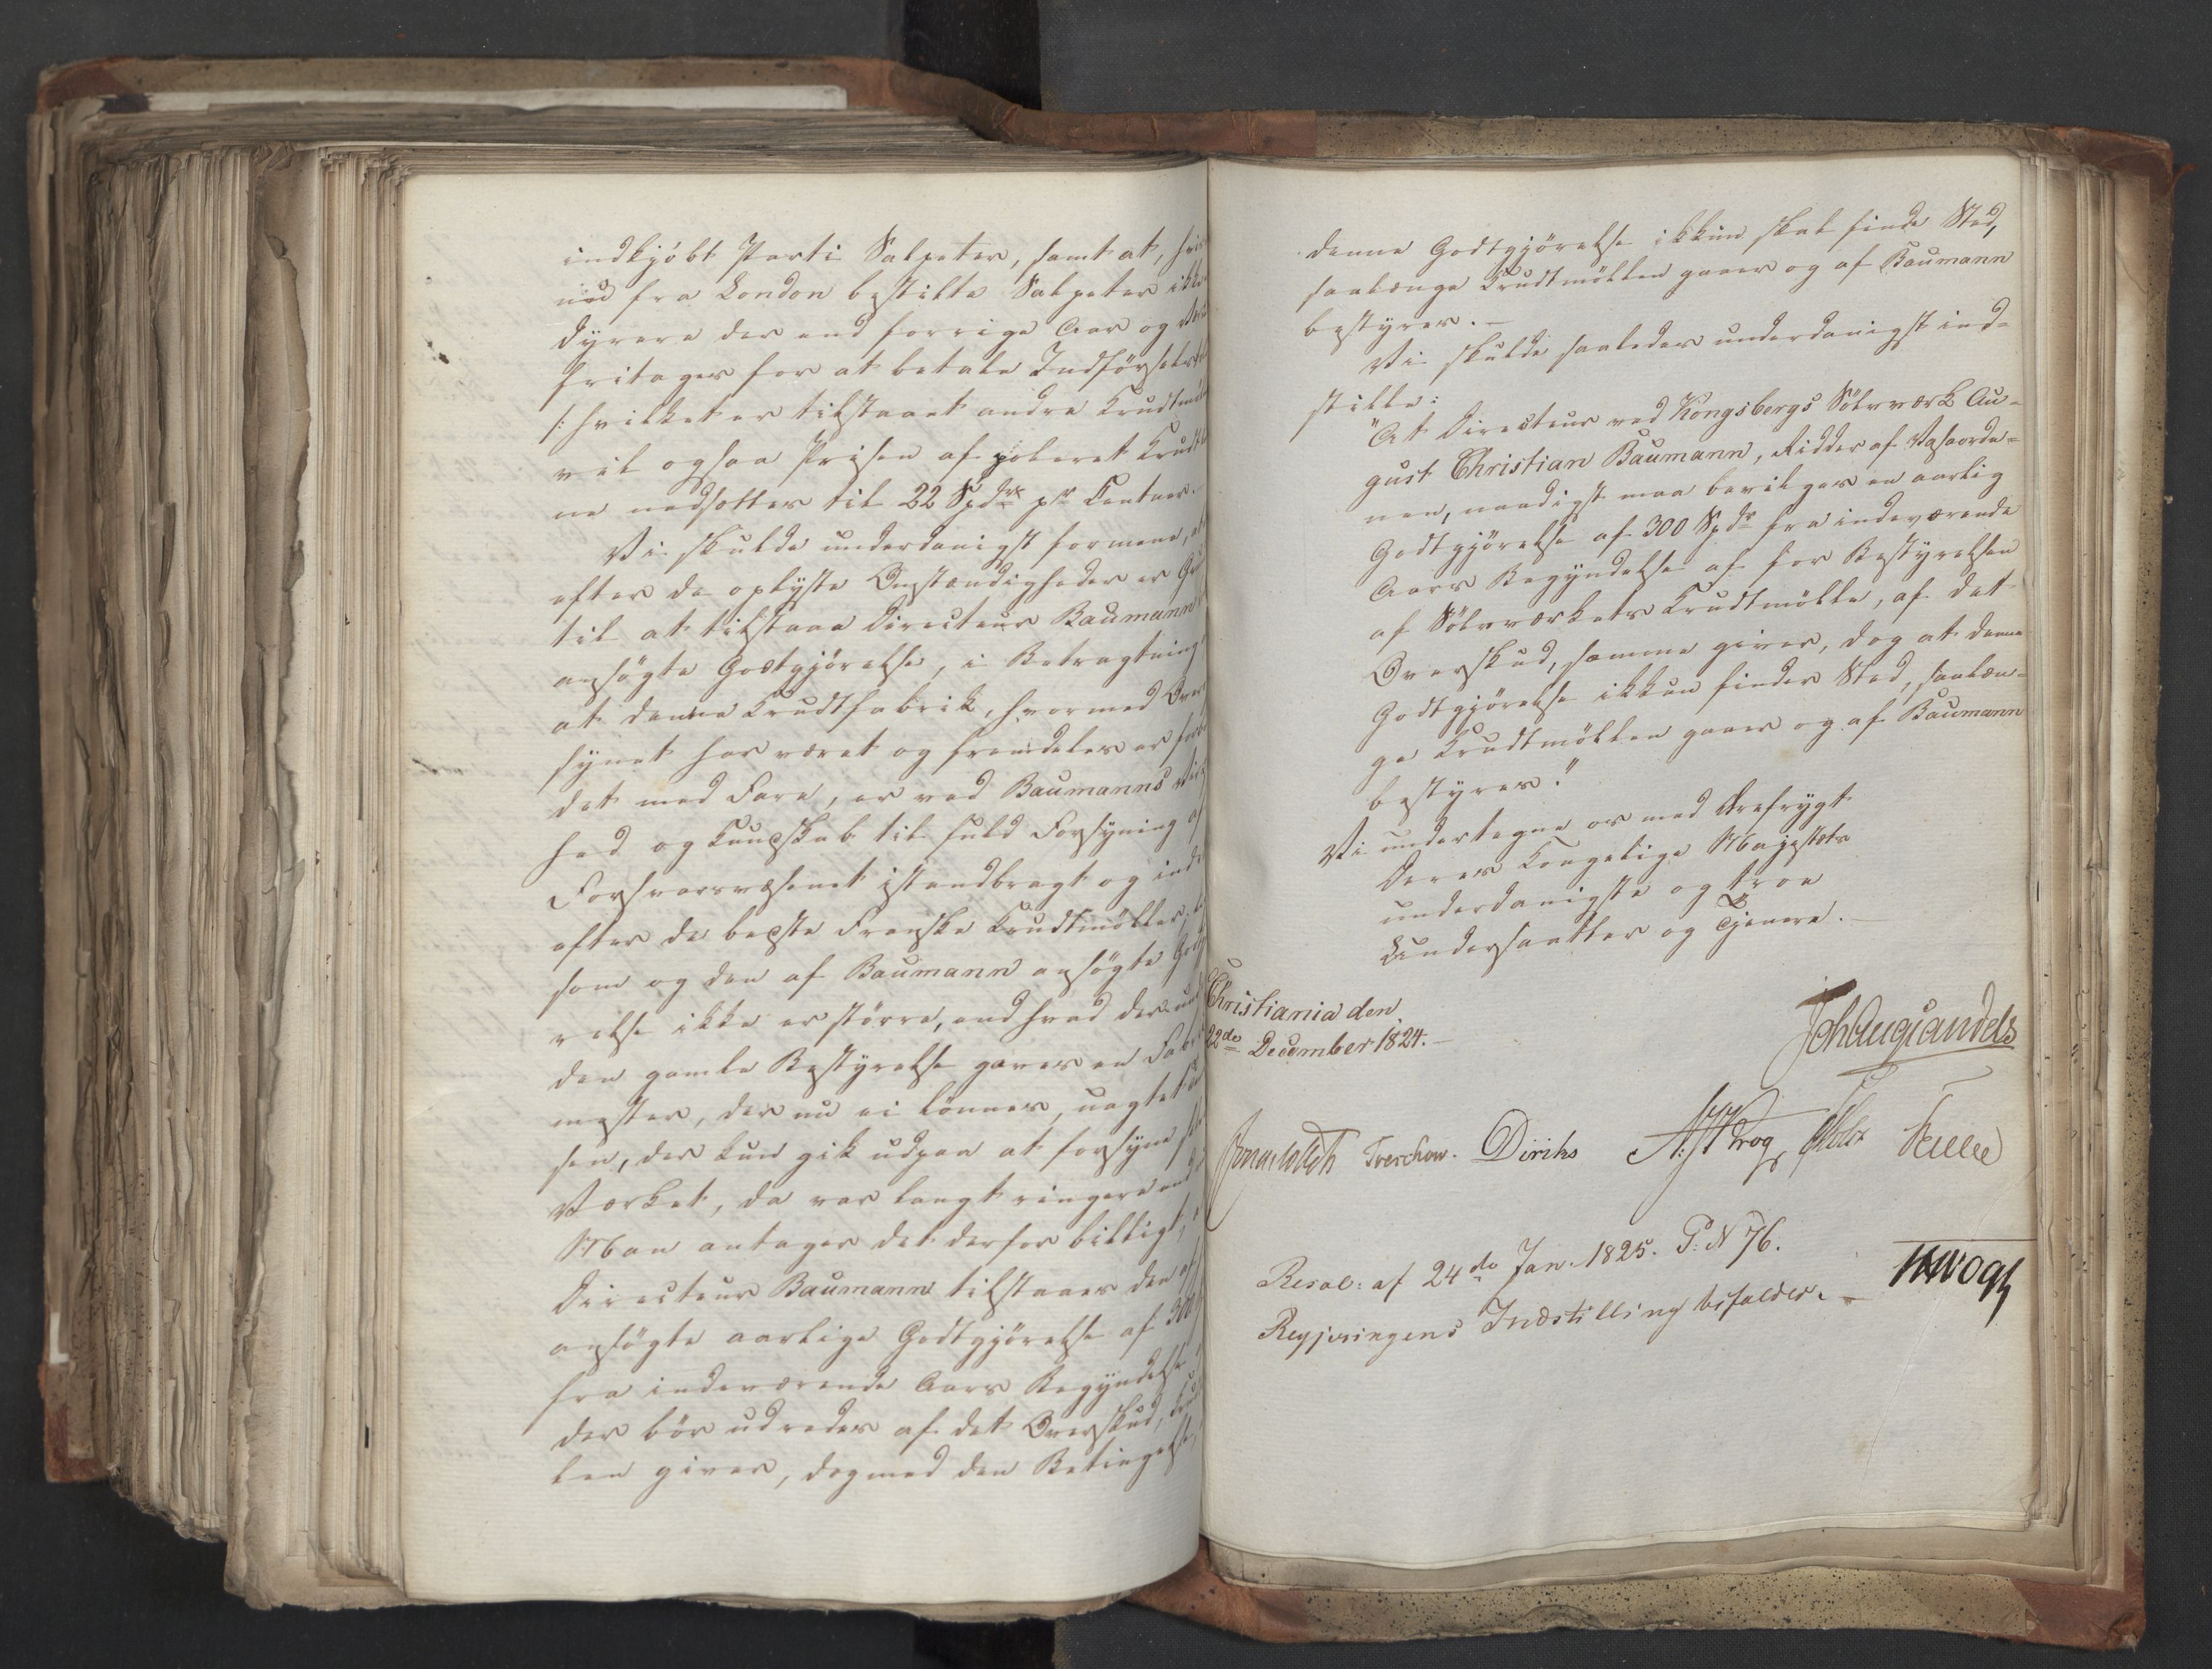 indkjöbt Parti Salpeter, samt at, hvis
nu fra London bestilte Salpeter ikke
dyrere der end forrige Aar og
fritages for at betale Indförsels
/: hvilket er tilstaaet andre Krudtmöl
vil ogsaa Prisen af poleret Krudt
ne nedsættes til 22 Spdr pr Centner.
Vi skulde underdanigst formene, at
efter de oplyste Omstændigheder er
til at tilstaae Directeur Baumann
ansögte Godtgjörelse, i Betragtning
at denne Krudtfabrik, hvormed
synet har været og fremdeles er
det med Fare, er ved Baumanns
hed og Kundskab til fuld Forsyning af
Forsvarsvæsenet istandbragt og
efter de bedste Franske Krudtmöller,
som og den af Baumann ansögte
relse ikke er större, end hvad der
den gamle Bestyrelse gaves en
mester, der nu ei lönnes, uagtet
sen, der kun gik udpaa at forsyne
Værket, da var langt ringere end
Man antager det derfor billigt,
Directeur Baumann tilstaaes den af
ansögte aarlige Godtgjörelse af 300
fra indeværende Aars Begyndelse
der bör udredes af det Overskud,
len giver, dog med den Betingelse,
denne Godtgjörelse ikkun skal finde Sted,
saalænge Krudtmöllen gaaer og af Baumann
bestyres.—
Vi skulde saaledes underdanigst ind-
stille:
"At Directeur ved Kongsbergs Sölvværk Au-
gust Christian Baumann, Ridder af Vasaorde-
nen, naadigst maa bevilges en aarlig
Godtgjörelse af 300 Spdr fra indeværende
Aars Begyndelse af for Bestyrelsen
af Sölvværkets Krudtmölle, af det
Overskud, samme giver, dog at denne
Godtgjörelse ikkun finder Sted, saalæn-
ge Krudtmöllen gaaer og af Baumann
bestyres."
Vi undertegne os med Ærefrygt
Deres Kongelige Majestæts
underdanigste og troe
Undersaatter og Tjenere.—
Christiania den
22de December 1824.—
Joh Aug Sandels
Jonas Collett Treschow. Diriks Krog
Resol: af 24de Jan. 1825. P. N 76.
Regjeringens Indstilling bifaldes.—
Vogt